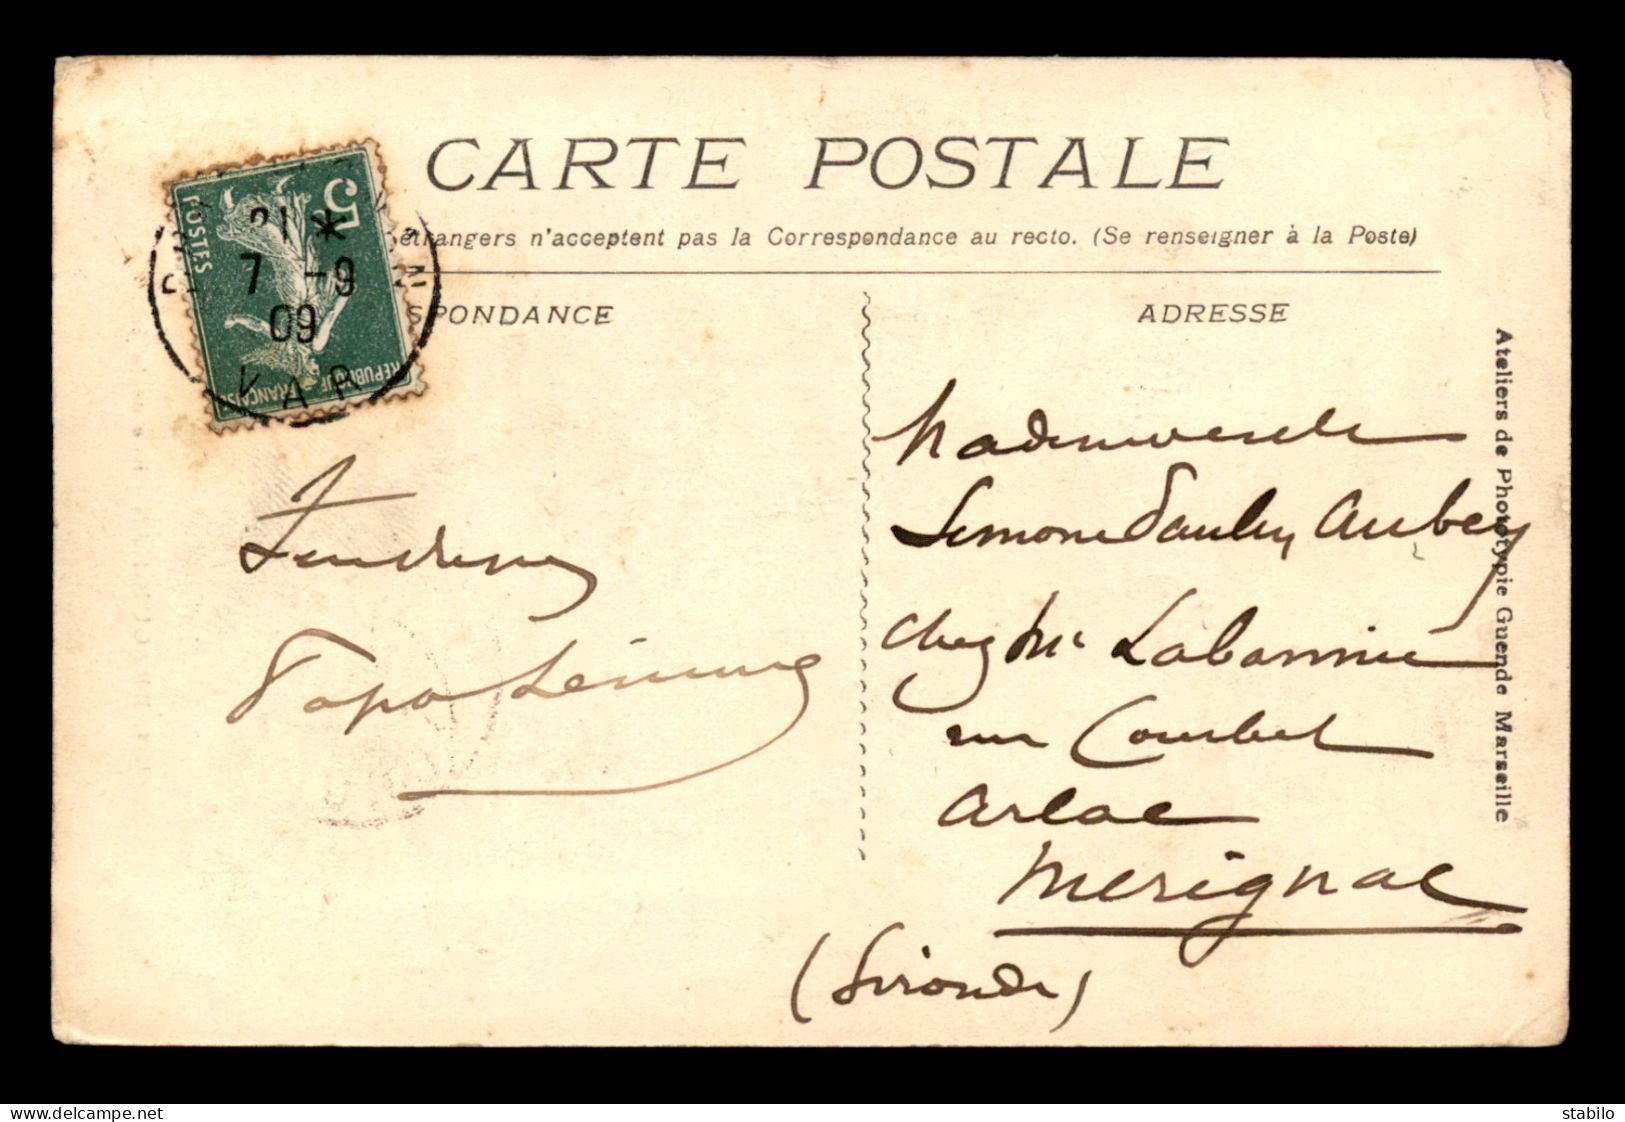 CARTE POSTALE
étrangers n'acceptent pas la Correspondance au recto. (Se renseigner à la Poste)
SPONDANCE
ADRESSE
5
POSTES
REPUBLIQUE FRANÇAISE
21 *
7 -9
09
VAR
Tendresses
Papa
Mademoiselle
Simone Aubey
chez Mr
rue Courbet
Arlac
Merignac
(Gironde)
Ateliers de Phototypie Guende Marseille
delcampe.net
stabilo